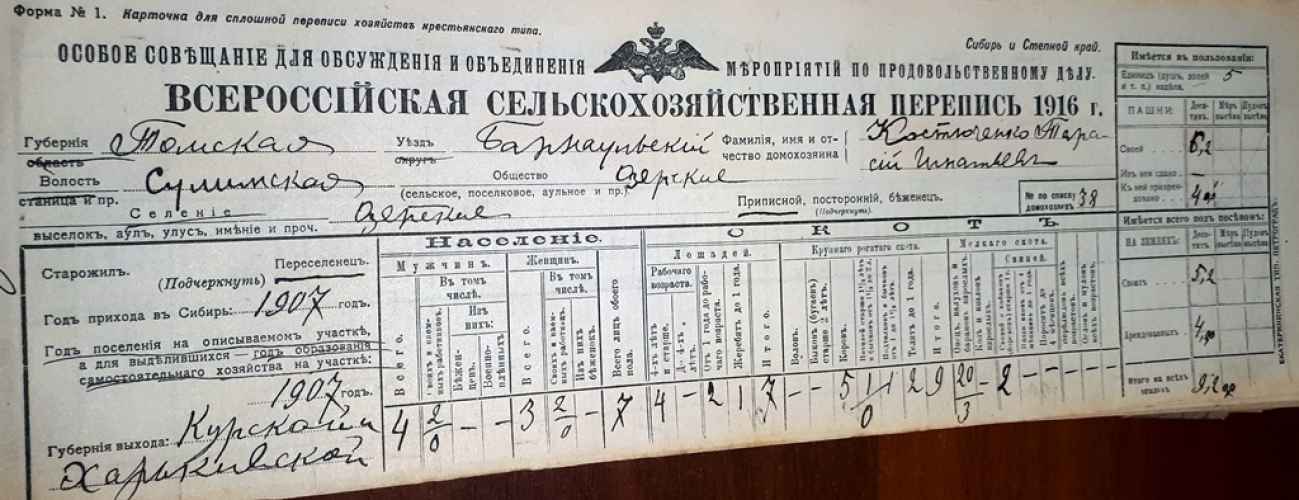 Форма № 1. Карточка для сплошной переписи хозяйствъ крестьянскаго типа.
Сибирь и Степной край.
ОСОБОЕ СОВѢЩАНІЕ ДЛЯ ОБСУЖДЕНІЯ И ОБЪЕДИНЕНІЯ МѢРОПРІЯТІЙ ПО ПРОДОВОЛЬСТВЕННОМУ ДѢЛУ.
ВСЕРОССІЙСКАЯ СЕЛЬСКОХОЗЯЙСТВЕННАЯ ПЕРЕПИСЬ 1916 г.
Губернія Томская Уѣздъ Барнаульскій Фамилія, имя и от- Костюченко Тара
область округъ чество домохозяина сій Игнатьев
Волость Сулимская Общество Озерские
станица и пр. (сельское, поселковое, аульное и пр.) Приписной, посторонній, бѣженецъ. № по списку домохозяевъ 38
Селеніе Озерские (Подчеркнуть).
выселокъ, аулъ, улусъ, имѣніе и проч.
Старожилъ. Переселенецъ.
(Подчеркнуть)
Годъ прихода въ Сибирь: 1907 годъ.
Годъ поселенія на описываемомъ участкѣ,
а для выдѣлившихся — годъ образованія
самостоятельнаго хозяйства на участкѣ:
1907 годъ.
Губернія выхода: Курской и
Харьковской
Населеніе.
Мужчинъ. Женщинъ.
Всего.
Въ томъ числѣ.
Своихъ и наемныхъ работниковъ.
Изъ нихъ:
Бѣженцевъ.
Военноплѣнныхъ
Всего.
Въ томъ числѣ.
Своихъ и наемныхъ работницъ.
Изъ нихъ бѣженокъ.
Всего лицъ обоего пола.
4 2/0 - - 3 2/0 - 7
СКОТЪ
Лошадей. Крупнаго рогатаго скота. Мелкаго скота.
Рабочаго возраста.
4-хъ лѣтъ и старше.
До 4-хъ лѣтъ.
Отъ 1 года до рабочаго возраста.
Жеребятъ до 1 года.
Итого.
Воловъ.
Быковъ (бугаевъ) старше 2 лѣтъ.
Коровъ.
Телятъ до 1 года.
Итого.
Козловъ и козъ взрослыхъ.
Свиней.
4 - 2 1 7 - - 5 1/0 1 2 9 20/3 - 2 - - -
Имѣется въ пользованіи:
Единицъ (душъ, долей и т. п.) надѣла. 5
ПАШНИ: Десятинъ. Мѣръ высѣва. Пудовъ высѣва.
Своей 5,2
Изъ нея сдано —
Къ ней приарендовано 4 ар
Имѣется всего подъ посѣвомъ:
НА ЗЕМЛЯХЪ: Десятинъ. Мѣръ высѣва. Пудовъ высѣва.
Своихъ 5,2
Арендованныхъ 4 ар
Итого на всѣхъ земляхъ 9,2 ар
ЕКАТЕРИНИНСКАЯ ТИП. ПЕТРОГРАДЪ.